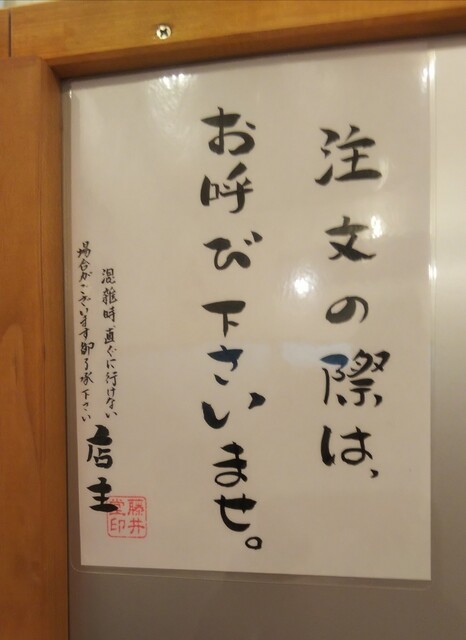 注文の際は、
お呼び下さいませ。
混雑時、直ぐに行けない
場合がございます御了承下さい
店主
藤井
堂印